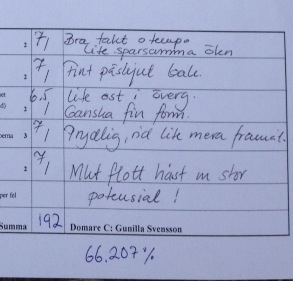 2 7, Bra takt o tempo
Lite sparsamma ökn
2 7, Fint påskjut bak.
6.5, Lite ost i överg.
Ganska fin form.
3 7, Tydlig, rid lite mera framåt.
2 7, Mkt flott häst m stor
potensial !
per fel
Summa 192 Domare C: Gunilla Svensson
66,207 %